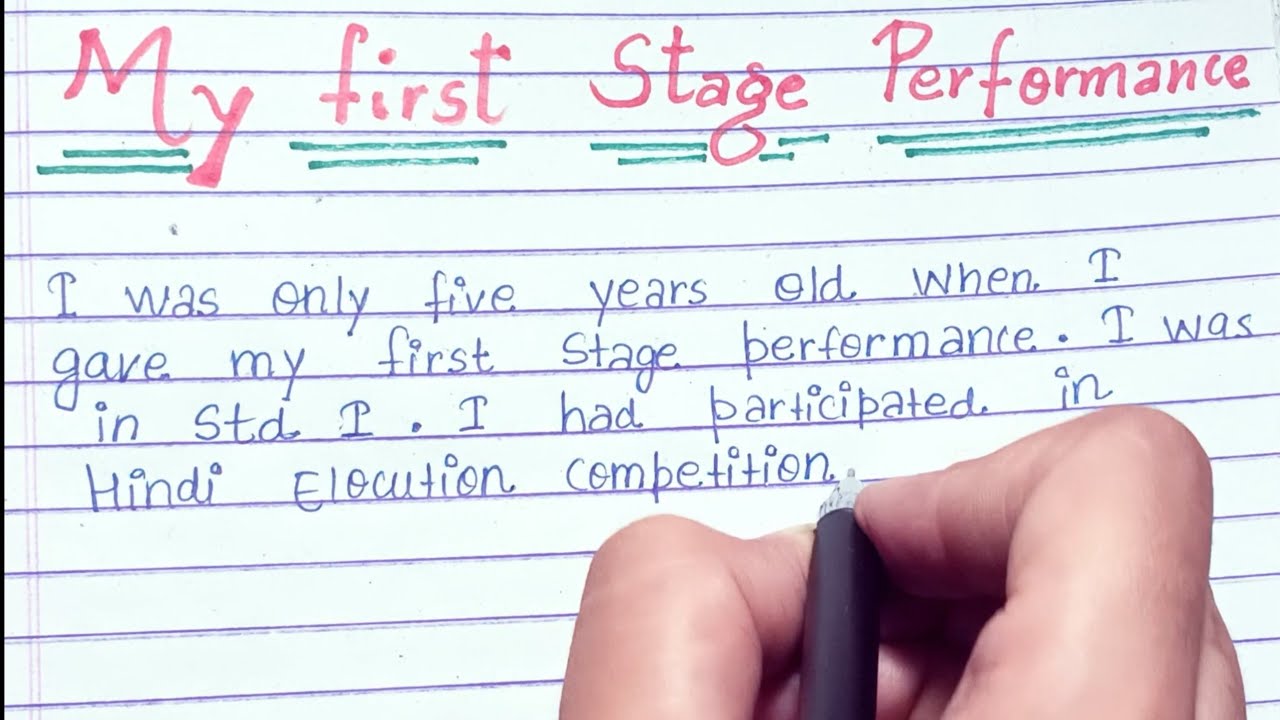 My first Stage Performance
I was only five years old when I
gave my first stage performance. I was
in Std I. I had participated in
Hindi Elocution competition